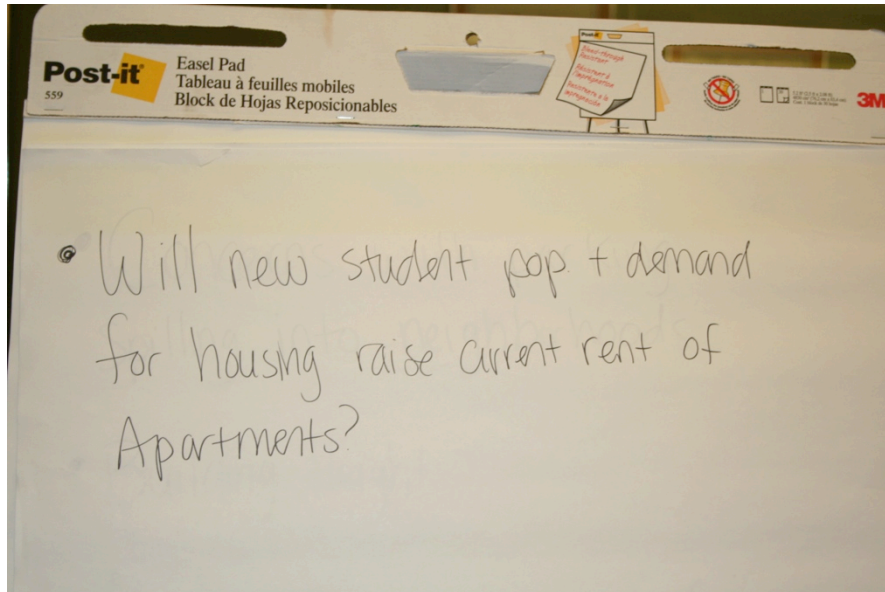 Post-it
559
Easel Pad
Tableau à feuilles mobiles
Block de Hojas Reposicionables
Post-it
3M
• Will new student pop. + demand
for housing raise current rent of
Apartments?